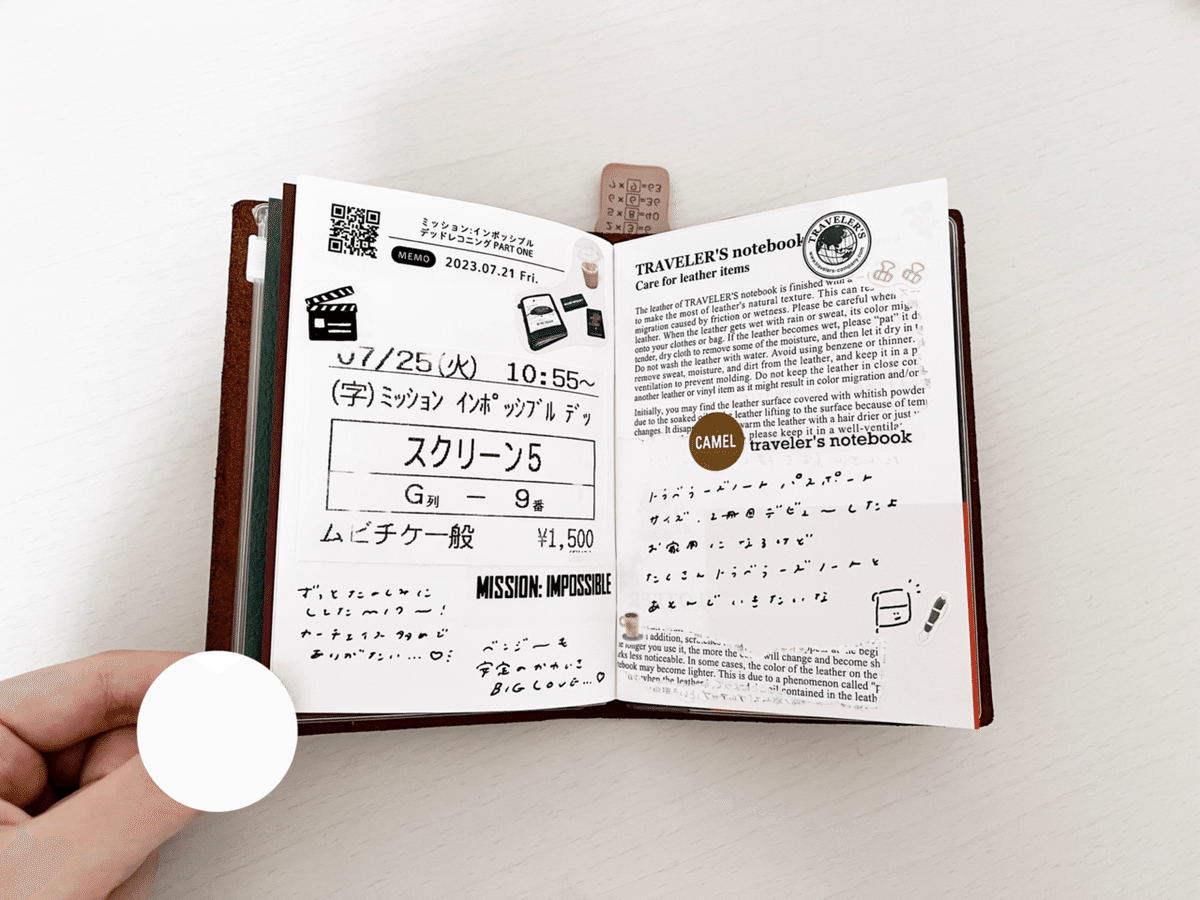 ミッション:インポッシブル
デッドレコニング PART ONE
MEMO 2023.07.21 Fri.
07/25(火) 10:55~
(字)ミッション インポッシブル デッ
スクリーン5
G列 ー 9番
ムビチケ一般 ¥1,500
MISSION: IMPOSSIBLE
ずっとたのしみに
カーチェイス多めで
ありがたい…♡
ベンジーも
安定のかわいさ
BIG LOVE...♡
7×9=63
6×6=36
5×8=40
2×3=6
TRAVELER'S notebook
Care for leather items
TRAVELER'S
www.travelers-company.com
The leather of TRAVELER'S notebook is finished with a
to make the most of leather's natural texture. This can
migration caused by friction or wetness. Please be careful when
leather. When the leather gets wet with rain or sweat, its color mig
onto your clothes or bag. If the leather becomes wet, please "pat" it
tender, dry cloth to remove some of the moisture, and then let it dry in
Do not wash the leather with water. Avoid using benzene or thinner.
remove sweat, moisture, and dirt from the leather, and keep it in a p
ventilation to prevent molding. Do not keep the leather in close con
another leather or vinyl item as it might result in color migration and/or
Initially, you may find the leather surface covered with whitish powder
due to the soaked leather lifting to the surface because of tem
changes. It disap warm the leather with a hair drier or just
please keep it in a well-ventila
CAMEL traveler's notebook
トラベラーズノート パスポート
サイズ、2冊目デビューしたよ
お家用になるけど
たくさんトラベラーズノートと
あそんでいきたいな
addition,
longer you use it, the more the will change and become sh
rks less noticeable. In some cases, the color of the leather on the
tebook may become lighter. This is due to a phenomenon called "p
when the contained in the leath